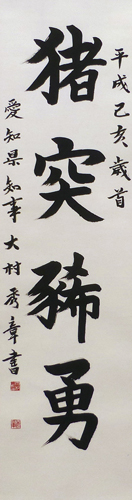 平成己亥歳首
猪突豨勇
愛知県知事大村秀章書